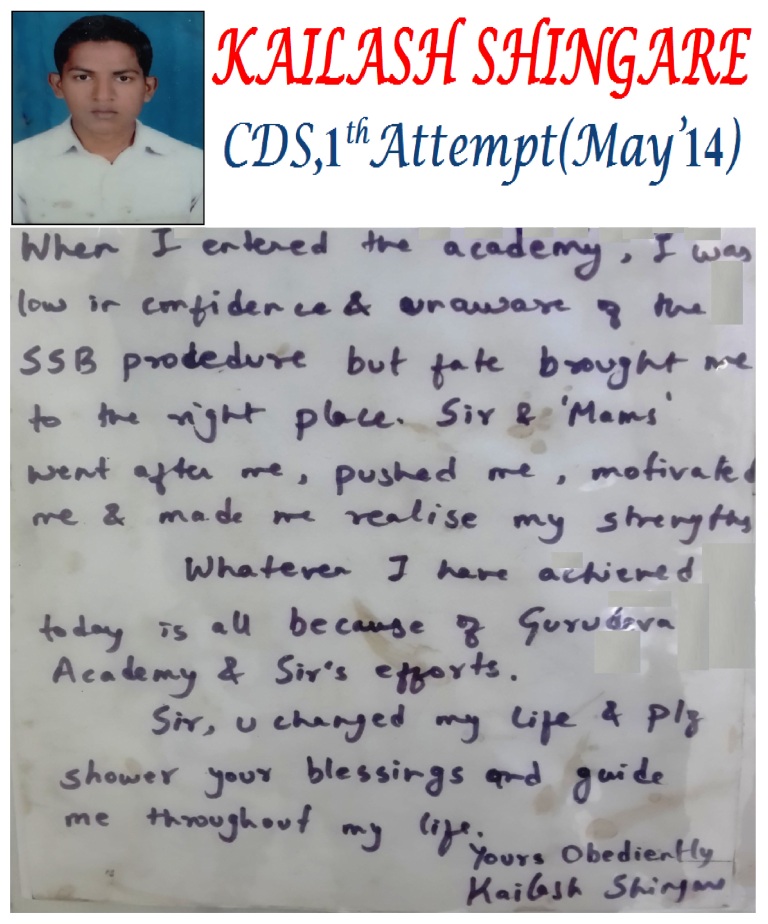 KAILASH SHINGARE
CDS,1th Attempt(May'14)
When I entered the academy, I was
low in confidence & unaware of the
SSB prodedure but fate brought me
to the right place. Sir & 'Mams'
went after me, pushed me, motivated
me & made me realise my strengths
Whatever I have achieved
today is all because of Gurudeva
Academy & Sir's efforts.
Sir, u changed my life & plz
shower your blessings and guide
me throughout my life.
Yours Obediently
Kailash Shingare